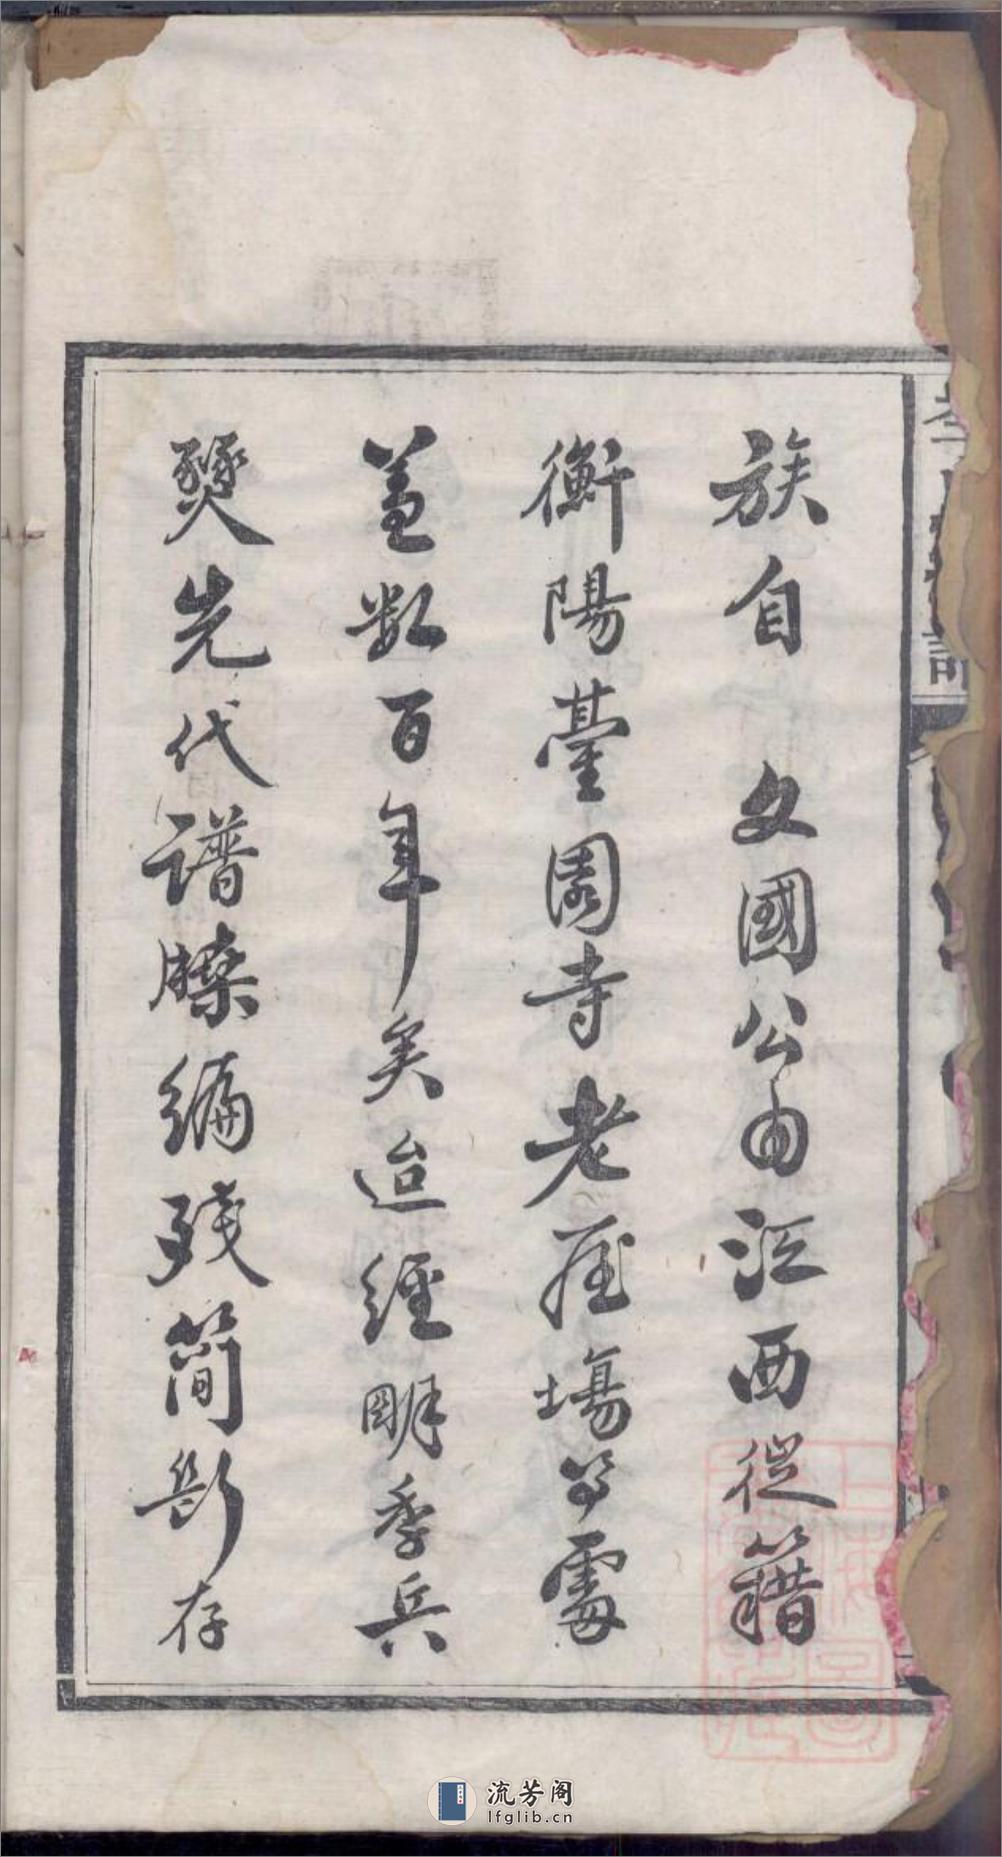 族自 文國公由江西從籍
衡陽臺園寺老屋塲等處
蓋數百年矣迨經明季兵
燹先代譜牒編殘簡斷存
流芳阁
lfglib.cn